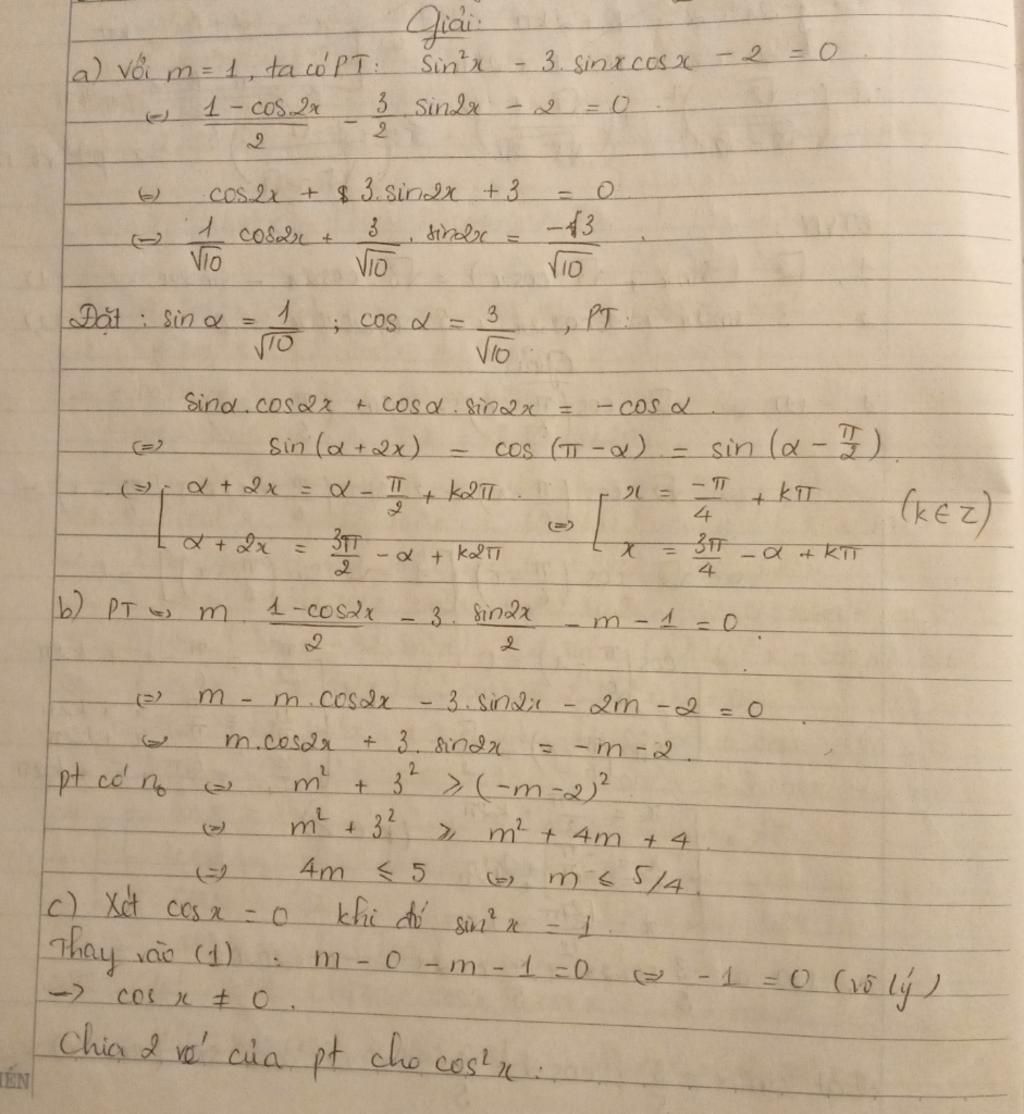 Giải:
a) Với m = 1, ta có PT: Sin²x - 3. sinxcosx - 2 = 0
(=) (1 - cos2x)/2 - 3/2 sin2x - 2 = 0
(=) cos2x + 3.sin2x + 3 = 0
(=) 1/√10 cos2x + 3/√10 . sin2x = -3/√10
Đặt : sin α = 1/√10 ; cos α = 3/√10 , PT:
Sinα.cos2x + cosα.sin2x = -cos α
(=) sin(α + 2x) = cos(π - α) = sin(α - π/2)
(=) [ α + 2x = α - π/2 + k2π (=) [ x = -π/4 + kπ (k ∈ Z)
α + 2x = 3π/2 - α + k2π x = 3π/4 - α + kπ
b) PT (=) m (1 - cos2x)/2 - 3. sin2x/2 - m - 1 = 0
(=) m - m.cos2x - 3.sin2x - 2m - 2 = 0
(=) m.cos2x + 3. sin2x = -m - 2
pt có n₀ (=) m² + 3² ≥ (-m - 2)²
(=) m² + 3² ≥ m² + 4m + 4
(=) 4m ≤ 5 (=) m ≤ 5/4
c) Xét cos x = 0 khi đó sin²x = 1
Thay vào (1) : m - 0 - m - 1 = 0 (=) -1 = 0 (vô lý)
-> cos x ≠ 0.
Chia 2 vế của pt cho cos²x :
IẾN